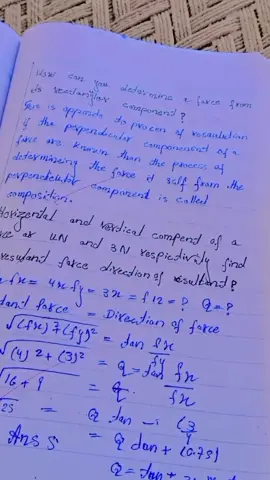 How can you determine a force from
its rectangular component?
This is opposite to process of resolution
if the perpendicular component of a
force are known than the process of
determining the force it self from the
perpendicular component is called
composition.
Horizental and vertical compend of a
ce ar 4N and 3N respictivily find
resultand force direction of resultand?
fx = 4x fy = 3x = f12 = ? Q = ?
tant force = Direction of force
√(fx)² + (fy)² = tan fx/fy
√(4)2 + (3)² = Q = tan fx/fx
√16 + 9 = Q.
√25 = Q tan -1 (3/4)
Ans 5 = Q tan + (0.75)
Q = tan +